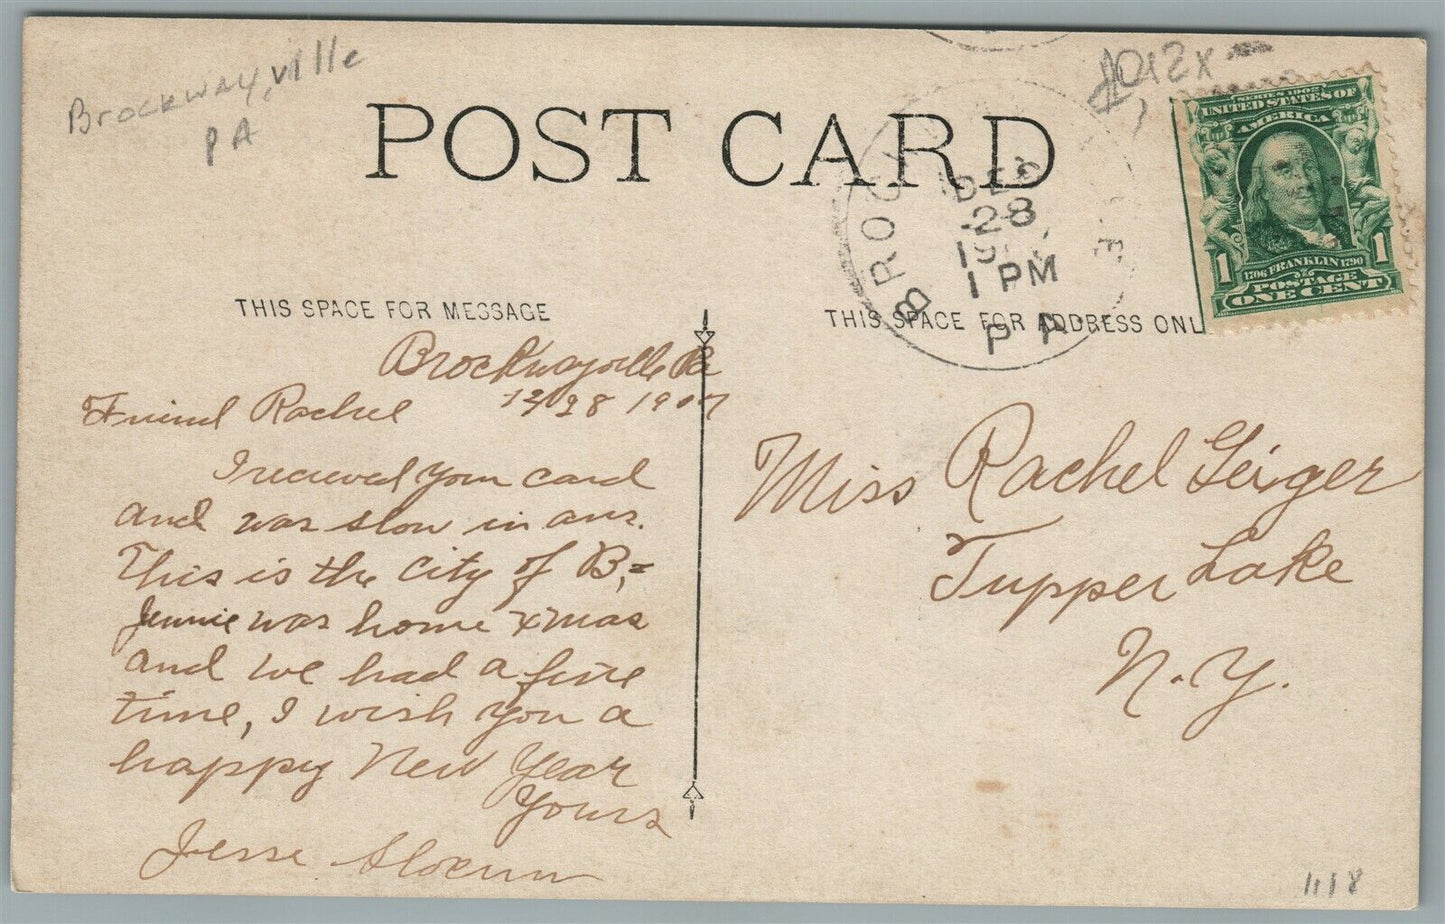 Brockwayville
PA
POST CARD
BROC E
DEC
28
19
1 PM
PA.
SERIES 1902
UNITED STATES OF
AMERICA
1 1
1706 FRANKLIN 1790
POSTAGE
ONE CENT
THIS SPACE FOR MESSAGE
Brockwayville Pa
12/28 1907
Friend Rachel
I recieved your card
and was slow in ans.
This is the city of B,=
Jennie was home xmas
and we had a fine
time, I wish you a
happy New Year
Yours
Jesse Slocum
THIS SPACE FOR ADDRESS ONL
Miss Rachel Geiger
Tupper Lake
N.Y.
1118